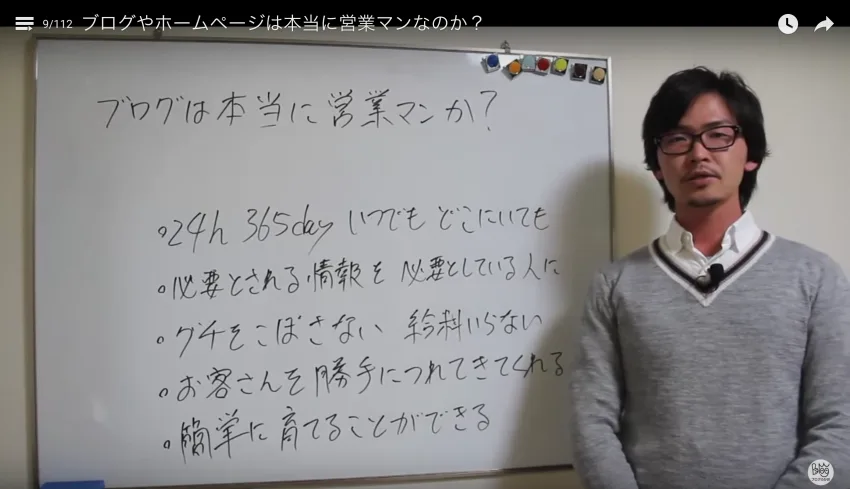 9/112 ブログやホームページは本当に営業マンなのか？
ブログは本当に営業マンか?
。24h 365day いつでも どこにいても
。必要とされる情報を 必要としている人に
。グチをこぼさない 給料いらない
。お客さんを勝手につれてきてくれる
。簡単に育てることができる